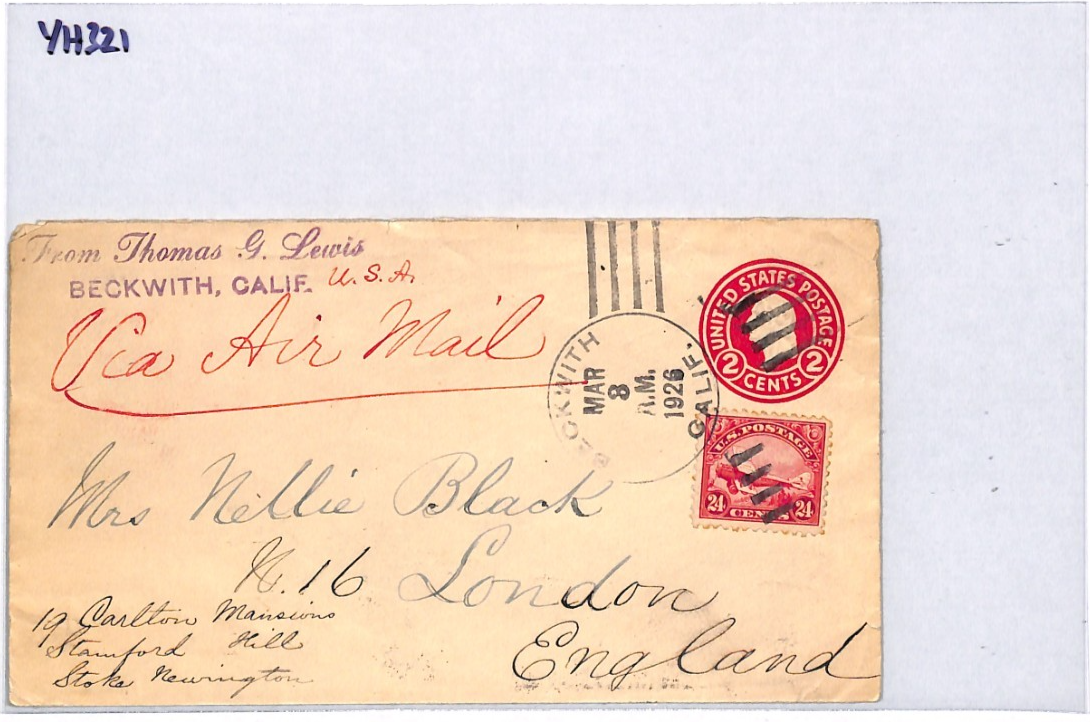 YH321
From Thomas G. Lewis
BECKWITH, CALIF. U.S.A.
Via Air Mail
BECKWITH CALIF.
MAR
8
A.M.
1926
UNITED STATES POSTAGE
2 CENTS 2
U.S. POSTAGE
24 CENTS 24
Mrs Nellie Black
N. 16 London
England
19 Carlton Mansions
Stamford Hill
Stoke Newington